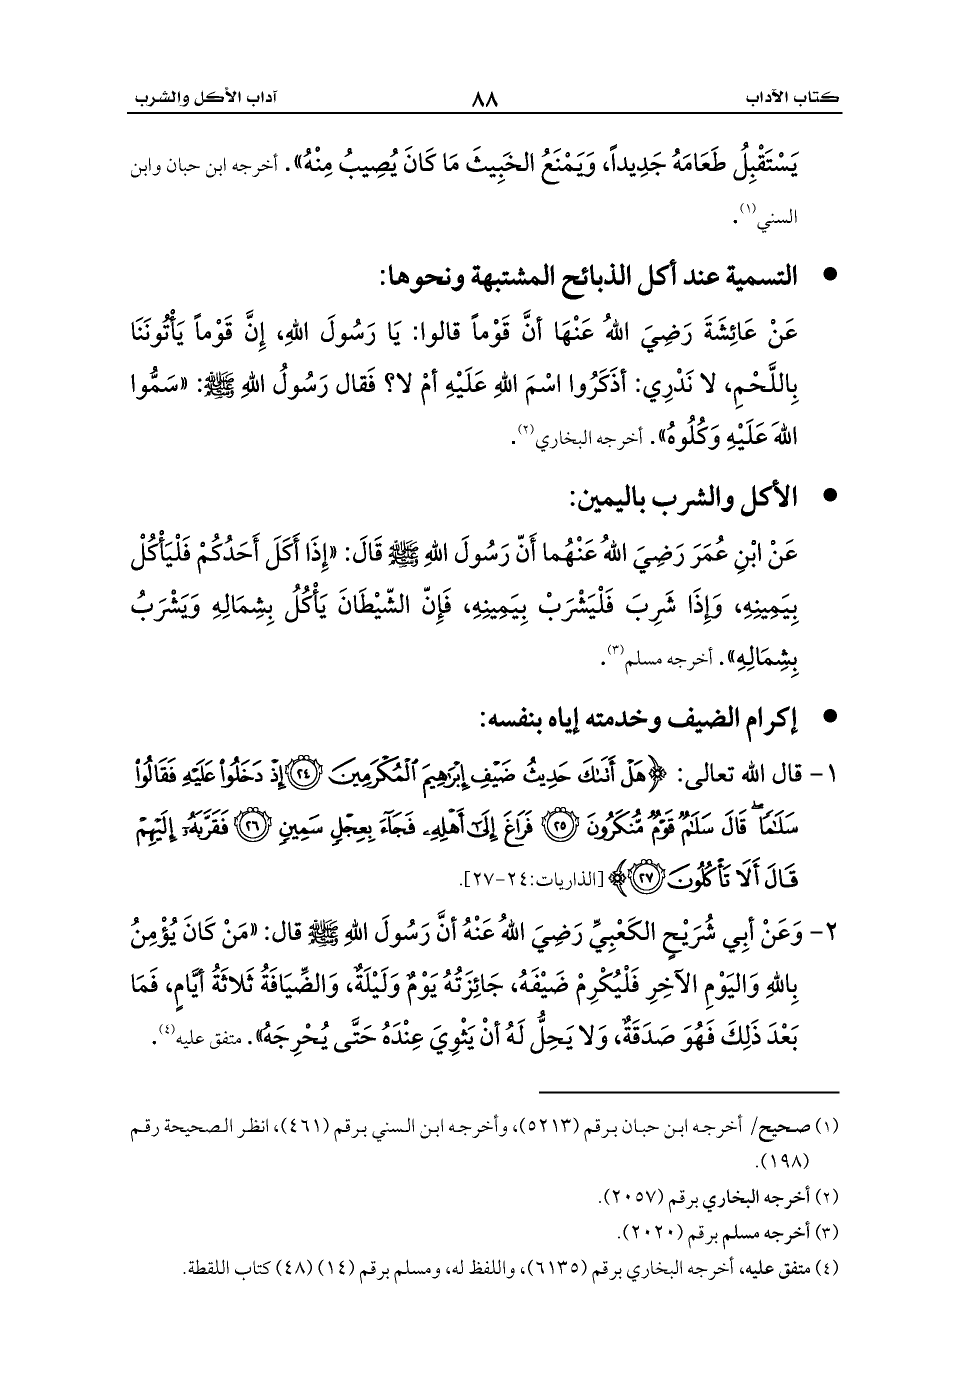 كتاب الآداب ٨٨ آداب الأكل والشرب
يَسْتَقْبِلُ طَعَامَهُ جَدِيداً، وَيَمْنَعُ الخَبِيثَ مَا كَانَ يُصِيبُ مِنْهُ». أخرجه ابن حبان وابن
السني(١).
● التسمية عند أكل الذبائح المشتبهة ونحوها:
عَنْ عَائِشَةَ رَضِيَ اللهُ عَنْهَا أنَّ قَوْماً قالوا: يَا رَسُولَ اللهِ، إِنَّ قَوْماً يَأْتُونَنَا
بِاللَّحْمِ، لا نَدْرِي: أذَكَرُوا اسْمَ اللهِ عَلَيْهِ أمْ لا؟ فَقال رَسُولُ اللهِ ﷺ: «سَمُّوا
اللهَ عَلَيْهِ وَكُلُوهُ». أخرجه البخاري(٢).
● الأكل والشرب باليمين:
عَنْ ابْنِ عُمَرَ رَضِيَ اللهُ عَنْهُما أَنّ رَسُولَ اللهِ ﷺ قَالَ: «إِذَا أَكَلَ أَحَدُكُمْ فَلْيَأْكُلْ
بِيَمِينِهِ، وَإِذَا شَرِبَ فَلْيَشْرَبْ بِيَمِينِهِ، فَإِنّ الشّيْطَانَ يَأْكُلُ بِشِمَالِهِ وَيَشْرَبُ
بِشِمَالِهِ». أخرجه مسلم(٣).
● إكرام الضيف وخدمته إياه بنفسه:
١- قال الله تعالى: ﴿هَلْ أَتَىٰكَ حَدِيثُ ضَيْفِ إِبْرَٰهِيمَ ٱلْمُكْرَمِينَ ٢٤ إِذْ دَخَلُوا۟ عَلَيْهِ فَقَالُوا۟
سَلَـٰمًا ۖ قَالَ سَلَـٰمٌ قَوْمٌ مُّنكَرُونَ ٢٥ فَرَاغَ إِلَىٰٓ أَهْلِهِۦ فَجَآءَ بِعِجْلٍ سَمِينٍ ٢٦ فَقَرَّبَهُۥٓ إِلَيْهِمْ
قَالَ أَلَا تَأْكُلُونَ ٢٧﴾ [الذاريات:٢٤-٢٧].
٢- وَعَنْ أبِي شُرَيْحٍ الكَعْبِيِّ رَضِيَ اللهُ عَنْهُ أنَّ رَسُولَ اللهِ ﷺ قال: «مَنْ كَانَ يُؤْمِنُ
بِاللهِ وَاليَوْمِ الآخِرِ فَلْيُكْرِمْ ضَيْفَهُ، جَائِزَتُهُ يَوْمٌ وَلَيْلَةٌ، وَالضِّيَافَةُ ثَلاثَةُ أيَّامٍ، فَمَا
بَعْدَ ذَلِكَ فَهُوَ صَدَقَةٌ، وَلا يَحِلُّ لَهُ أنْ يَثْوِيَ عِنْدَهُ حَتَّى يُحْرِجَهُ». متفق عليه(٤).
(١) صحيح/ أخرجه ابن حبان برقم (٥٢١٣)، وأخرجه ابن السني برقم (٤٦١)، انظر الصحيحة رقم
(١٩٨).
(٢) أخرجه البخاري برقم (٢٠٥٧).
(٣) أخرجه مسلم برقم (٢٠٢٠).
(٤) متفق عليه، أخرجه البخاري برقم (٦١٣٥)، واللفظ له، ومسلم برقم (١٤) (٤٨) كتاب اللقطة.